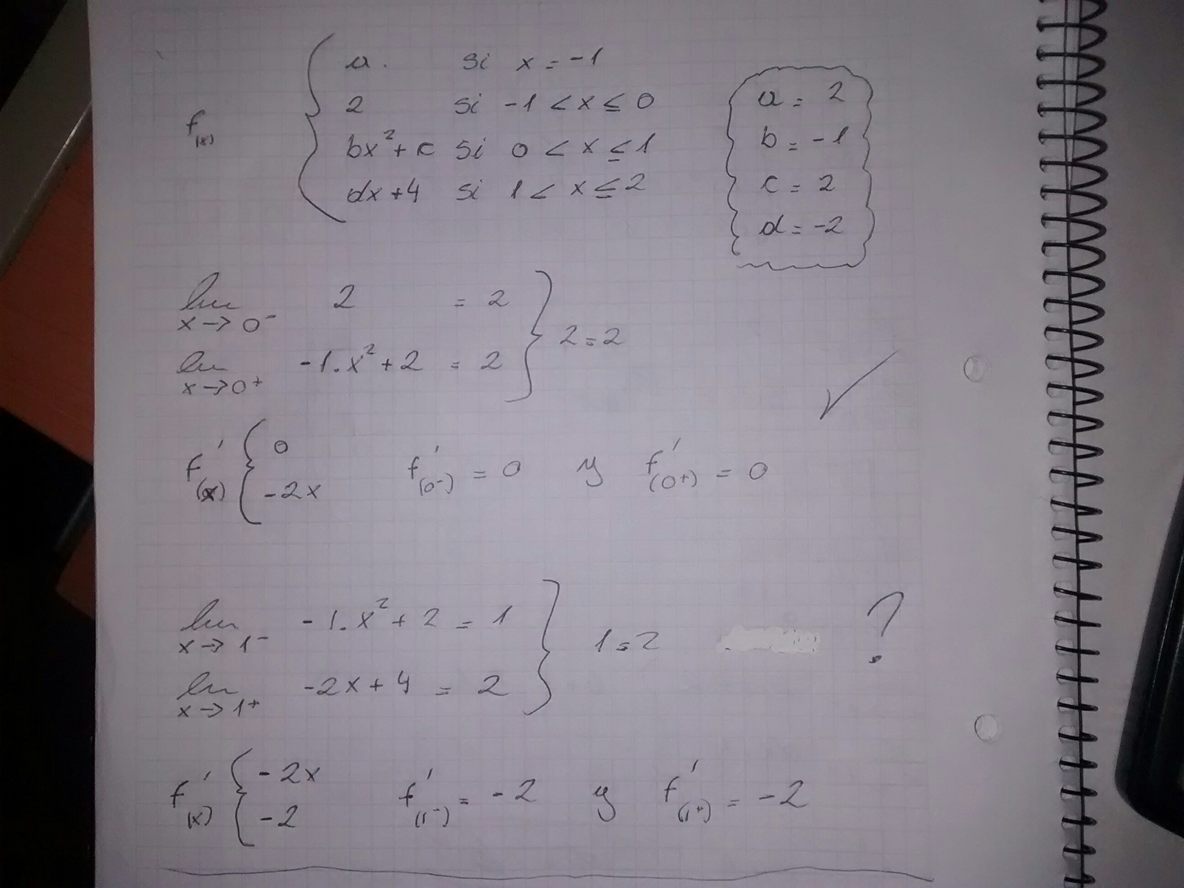 f(x) { a. si x = -1
2 si -1 < x ≤ 0
bx² + c si 0 < x ≤ 1
dx + 4 si 1 < x ≤ 2
a = 2
b = -1
c = 2
d = -2
lim x→0⁻ 2 = 2
lim x→0⁺ -1.x² + 2 = 2 } 2 = 2 ✓
f'(x) { 0
-2x
f'(0⁻) = 0 y f'(0⁺) = 0
lim x→1⁻ -1.x² + 2 = 1
lim x→1⁺ -2x + 4 = 2 } 1 = 2 ?
f'(x) { -2x
-2
f'(1⁻) = -2 y f'(1⁺) = -2